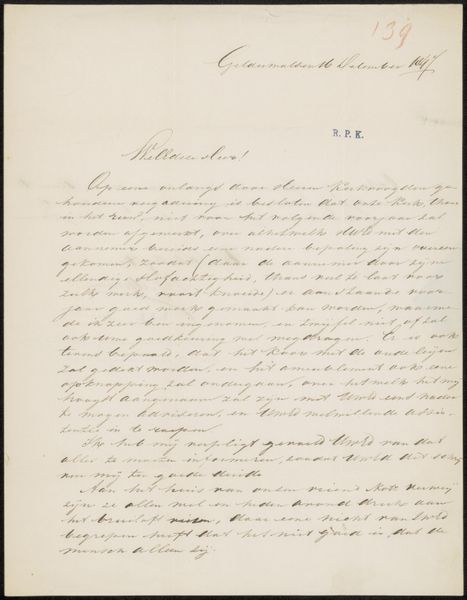 139
Geldermalsen 16 December 1847
R. P. K.
WelEdele Heer!
Op eene onlangs door Heeren Kerkvoogden ge-
houdene vergadering is besloten dat onze Kerk, thans
in het ruwe, niet voor het volgende voorjaar zal
worden afgewerkt, over al hetwelk UWEd met den
aannemer breeds eene nadere bepaling zijn overeen
gekomen; zoodat (daar de aannemer door zijne
ellendige slofachtigheid, thans veel te laat voor
zulk werk, voort) er aanstaande voor-
jaar goed werk gemaakt kan worden, waarme-
de ik zeer ben ingenomen, en twijfel niet of zal
ook uwe goedkeuring wel wegdragen. Er is ook
tevens bepaald, dat het Koor met de oude leijen
zal gedekt worden, en het ameublement ook eene
opknapping zal ondergaan, over hetwelk het mij
hoogst aangenaam zal zijn met UWEd eens nader
te mogen adviseren, en UWEd welwillende adsis-
tentie in te roepen.
Ik heb mij verpligt geacht UWEd van dat
alles te moeten informeren, zoodat UWEd dit schrij-
ven mij ten goede duide
Aan het huis van onzen vriend Kolff
zijn ze allen wel en heden avond druk aan
het bruiloft vieren, daar eene nicht van UWEd
begrepen heeft dat het niet goed is dat de
mensch alleen zij.